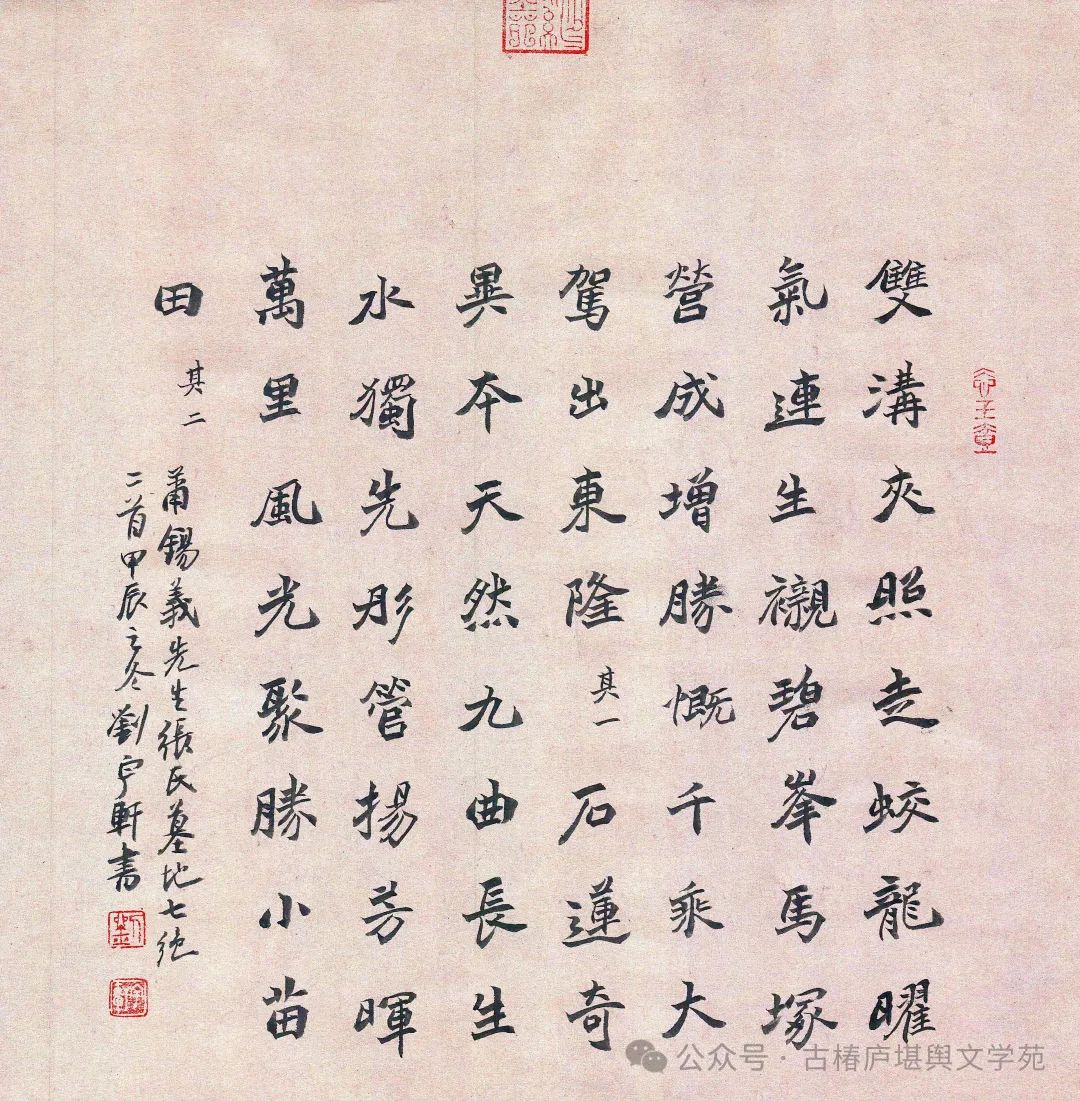 雙溝夾照走蛟龍曜
氣連生襯碧峯馬塚
營成增勝慨千乘大
駕出東隆 其一 石蓮奇
異本天然九曲長生
水獨先彤管揚芳暉
萬里風光聚勝小苗
田 其二
莆錫義先生張氏墓地七絕
二首甲辰之冬劉宇軒書
公众号·古椿庐堪舆文学苑